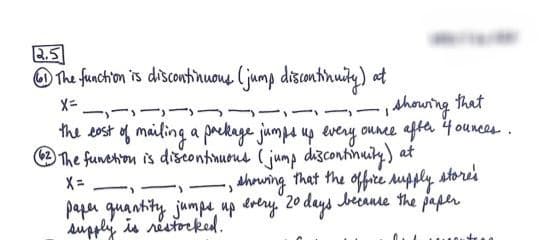 2.5
61 The function is discontinuous (jump discontinuity) at
x= __, __, __, __, __, __, __, __, __, __, showing that
the cost of mailing a package jumps up every ounce after 4 ounces.
62 The function is discontinuous (jump discontinuity) at
x= __, __, __, showing that the office supply store's
paper quantity jumps up every 20 days because the paper
supply is restocked.